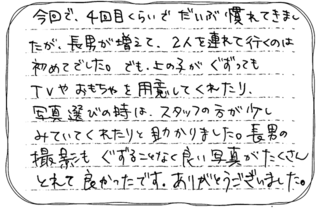 今回で、4回目くらいで だいぶ 慣れてきまし
たが、長男が増えて、2人を連れて行くのは
初めてでした。でも、上の子が ぐずっても
TVや おもちゃを用意してくれたり、
写真選びの時は、スタッフの方が少し
みていてくれたりと助かりました。長男の
撮影も ぐずることなく良い写真が たくさん
とれて 良かったです。ありがとうございました。